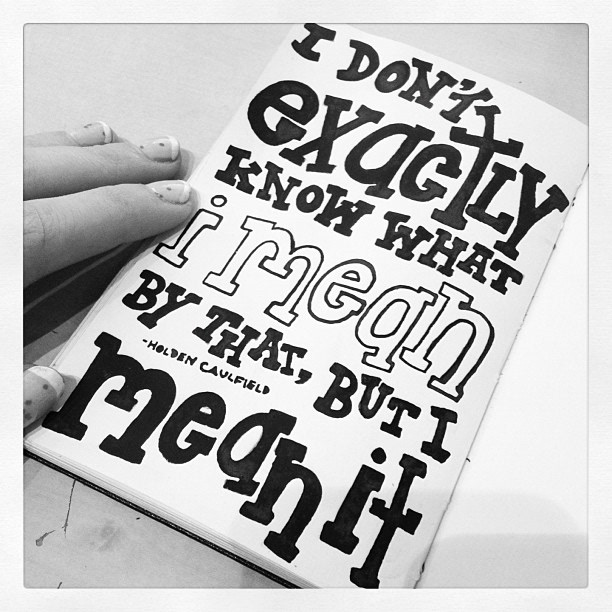 I DON'T
exactly
KNOW WHAT
i mean
BY THAT, BUT I
-HOLDEN CAULFIELD
mean it